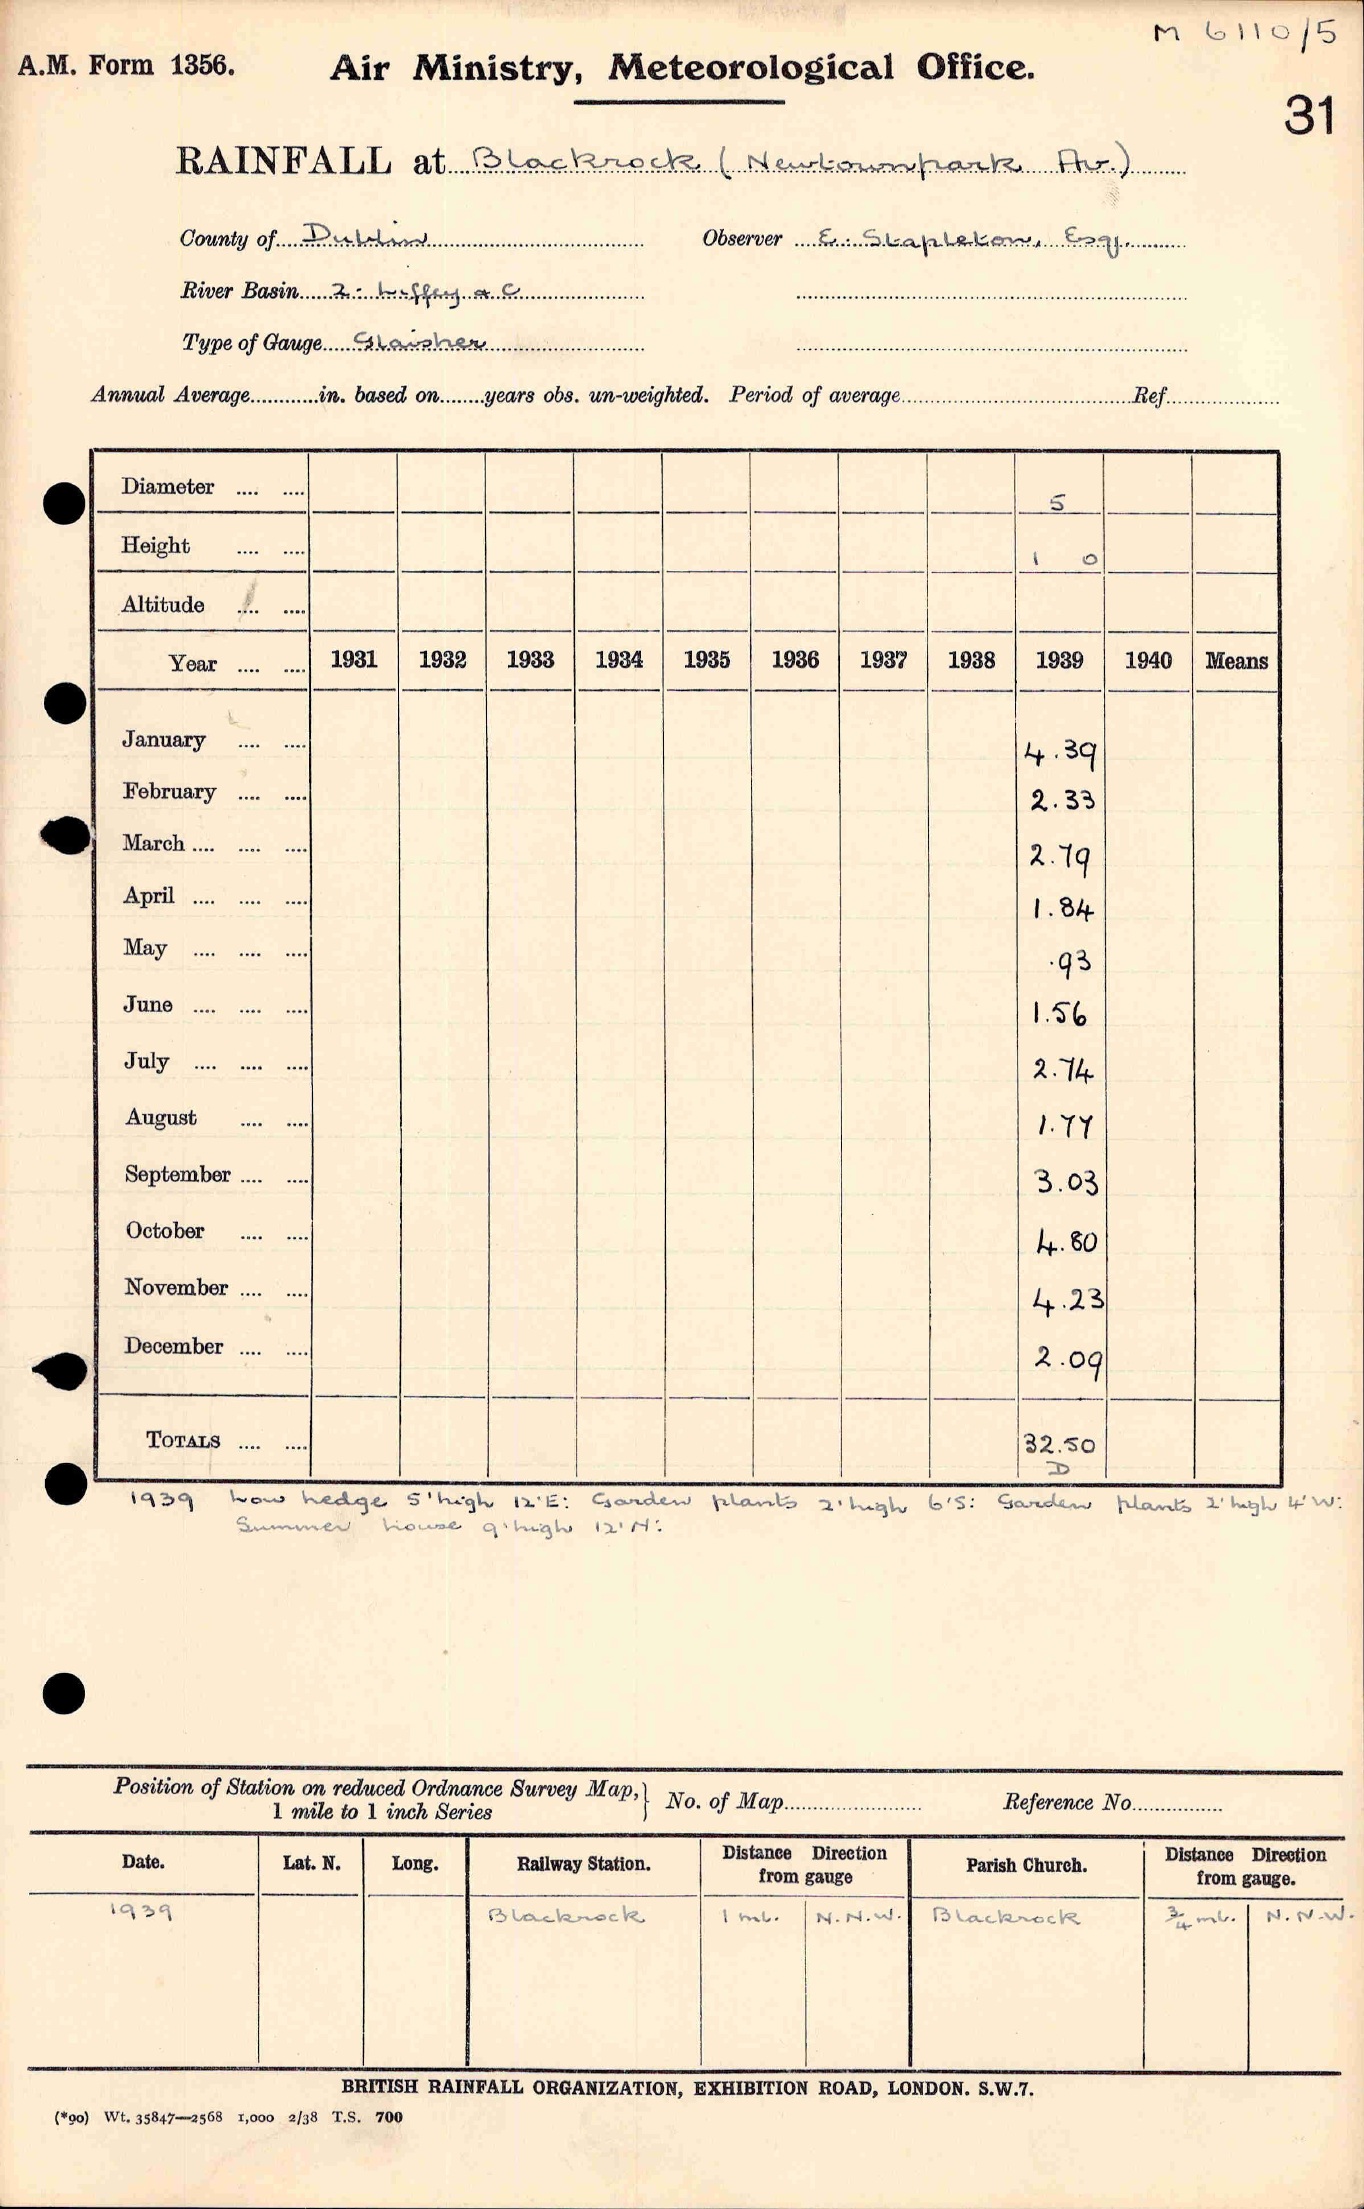 M 6110/5
A.M. Form 1356. Air Ministry, Meteorological Office.
31
RAINFALL at Blackrock (Newtownpark Av.)
County of Dublin Observer E. Stapleton, Esq.
River Basin 2. Liffey & C
Type of Gauge Glaisher
Annual Average in. based on years obs. un-weighted. Period of average Ref.
Diameter 5
Height 1 0
Altitude
Year 1931 1932 1933 1934 1935 1936 1937 1938 1939 1940 Means
January 4.39
February 2.33
March 2.79
April 1.84
May .93
June 1.56
July 2.74
August 1.77
September 3.03
October 4.80
November 4.23
December 2.09
TOTALS 32.50
D
1939 Low hedge 5' high 12' E: Garden plants 2' high 6' S: Garden plants 2' high 4' W:
Summer house 9' high 12' N:
Position of Station on reduced Ordnance Survey Map,} No. of Map Reference No.
1 mile to 1 inch Series
Date. Lat. N. Long. Railway Station. Distance Direction from gauge Parish Church. Distance Direction from gauge.
1939 Blackrock 1 ml. N.N.W. Blackrock 3/4 ml. N.N.W.
BRITISH RAINFALL ORGANIZATION, EXHIBITION ROAD, LONDON. S.W.7.
(*90) Wt. 35847—2568 1,000 2/38 T.S. 700